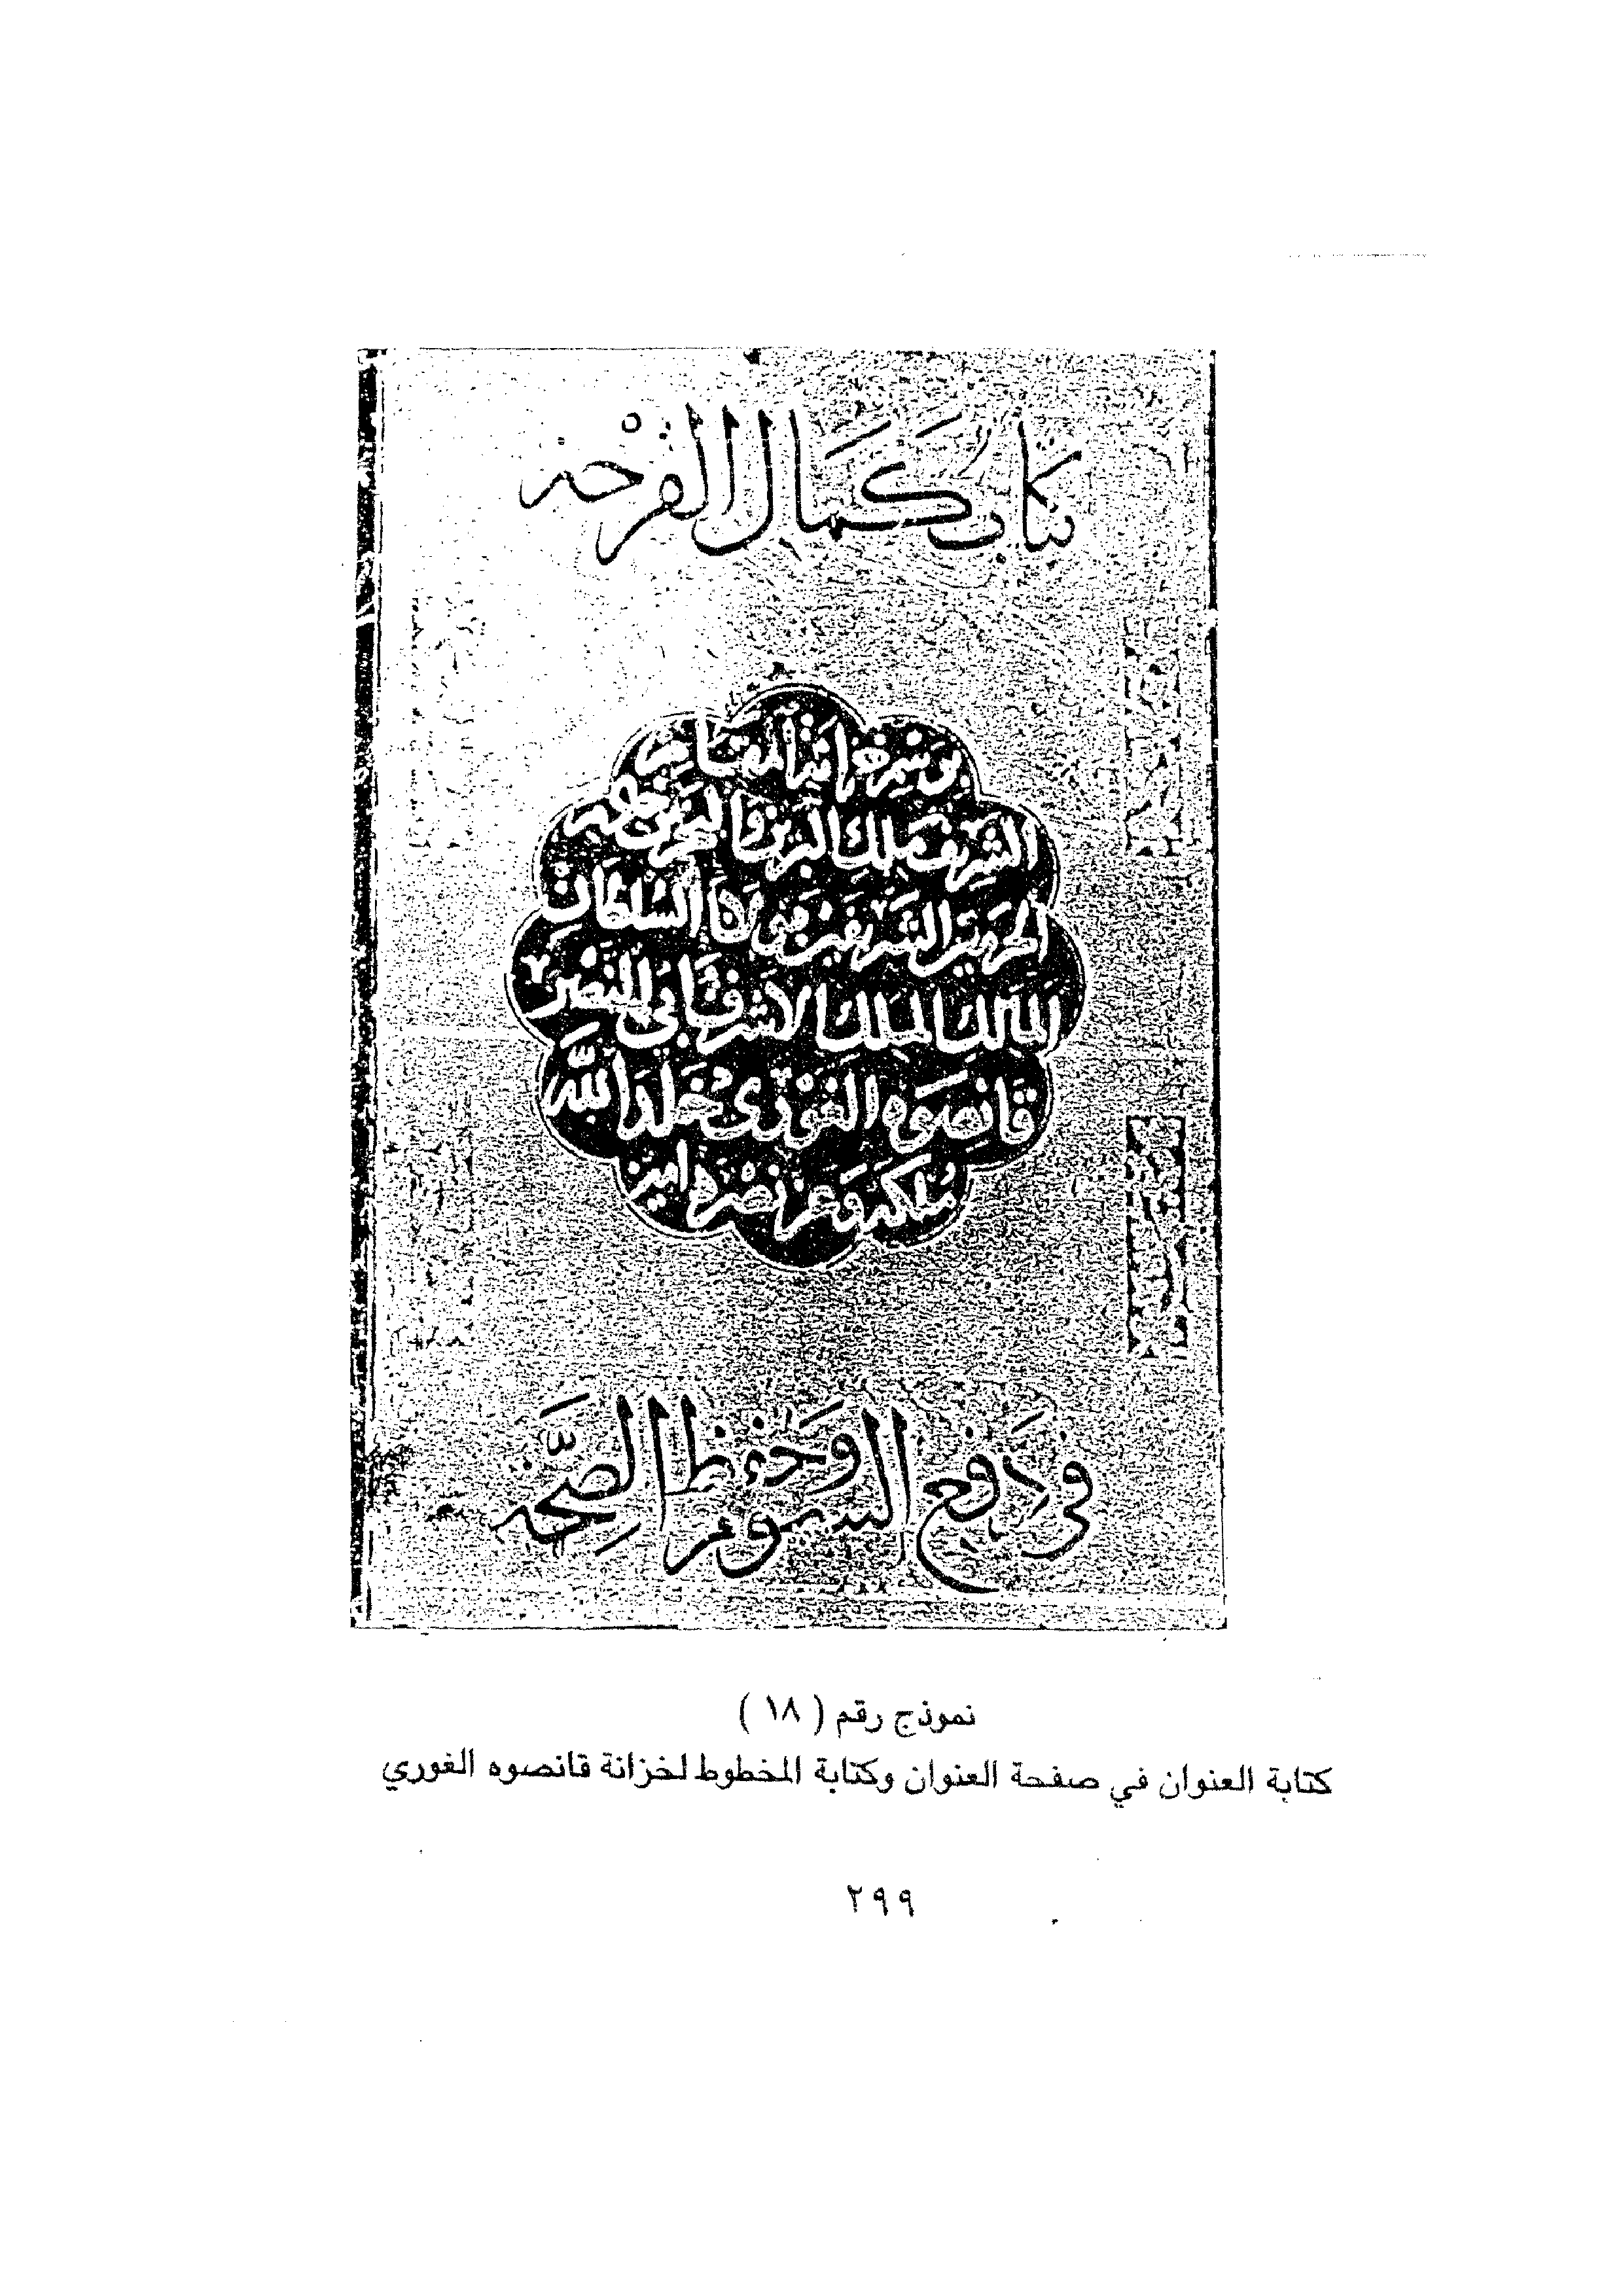 كتاب كمال الفرحة
الشريف ملك البرين والبحرين
الحرمين الشريفين مولانا السلطان
المالك الملك الاشرف ابى النصر
قانصوه الغورى خلد الله
ملكه وعز نصره امين
فى دفع السموم وحفظ الصحة
نموذج رقم ( ١٨ )
كتابة العنوان في صفحة العنوان وكتابة المخطوط لخزانة قانصوه الغوري
٢٩٩